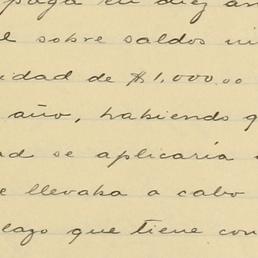 paga en diez an
l sobre saldos in
idad de $1,000.00
año, habiendo q
ad se aplicaría
e llevaba a cabo
lazo que tiene con